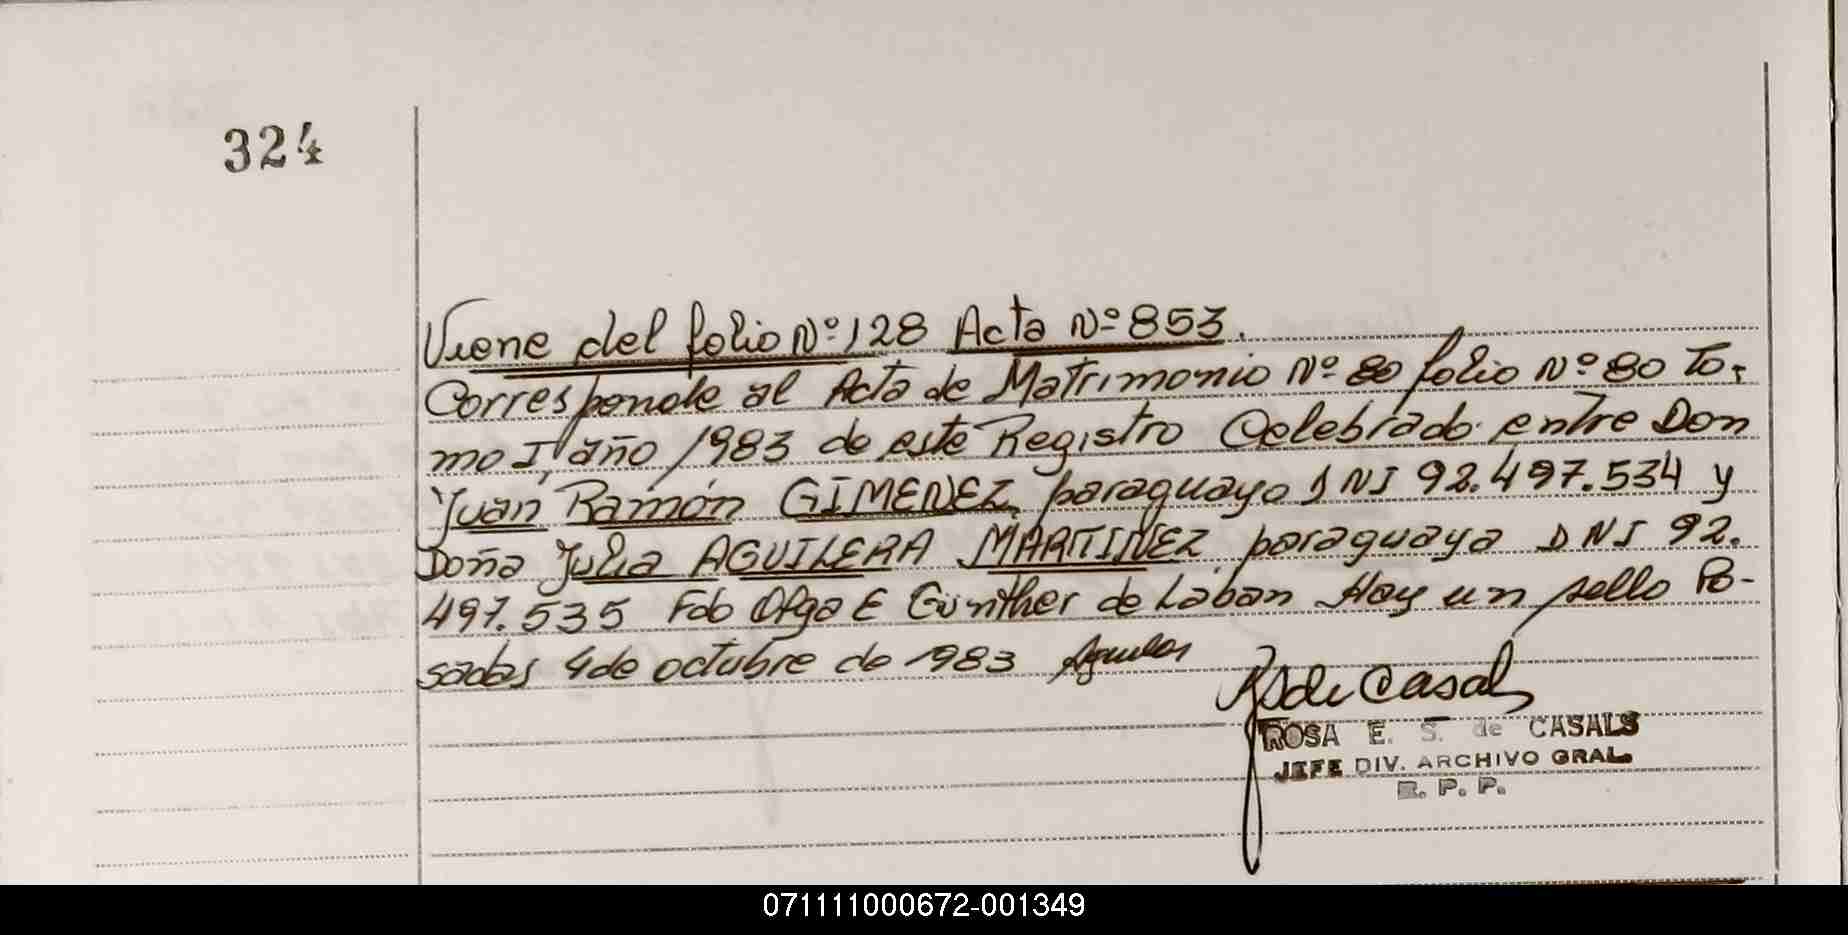 324
Viene del folio Nº 128 Acta Nº 853.
Corresponde al Acta de Matrimonio Nº 80 folio Nº 80 To-
mo I, año 1983 de este Registro Celebrado entre Don
Juan Ramón GIMENEZ paraguayo DNI 92.497.534 y
Doña Julia AGUILERA MARTINEZ paraguaya DNI 92.
497.535 Fdo Olga E Günther de Laban Hay un sello Po-
sadas 4 de octubre de 1983
RSde Casals
ROSA E. S. de CASALS
JEFE DIV. ARCHIVO GRAL.
R. P. P.
071111000672-001349